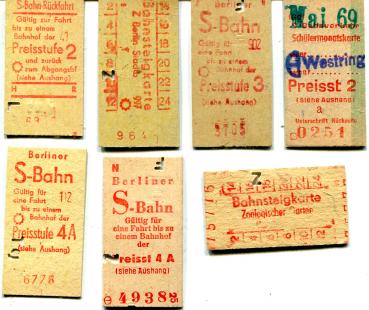 S-Bahn Rückfahrt
Gültig zur Fahrt
bis zu einem
Bahnhof der
Preisstufe 2
und zurück
zum Abgangsbf
(siehe Aushang)
H R
Bahnsteigkarte
2 4 6 8 10 12
14 16 18 20 22 24
964
S-Bahn
Gültig für
eine Fahrt
bis zu einem
Bahnhof der
Preisstufe 3
(siehe Aushang)
Mai 69
Schülermonatskarte
Westring
Preisst 2
(siehe Aushang)
a
Unterschrift Rückseite
0251
Berliner
S-Bahn
Gültig für
eine Fahrt
bis zu einem
Bahnhof der
Preisstufe 4A
(siehe Aushang)
6776
N
Berliner
S-Bahn
Gültig für
eine Fahrt bis zu
einem Bahnhof
der
Preisst 4 A
(siehe Aushang)
4938
Z
Bahnsteigkarte
Zoologischer Garten